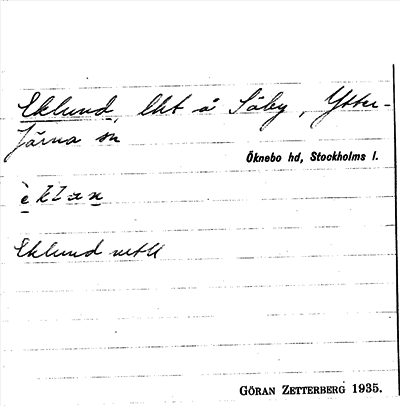 Eklund, lht å Säby, Ytter-
järna sn
Öknebo hd, Stockholms l.
Eklund uttl
GÖRAN ZETTERBERG 1935.